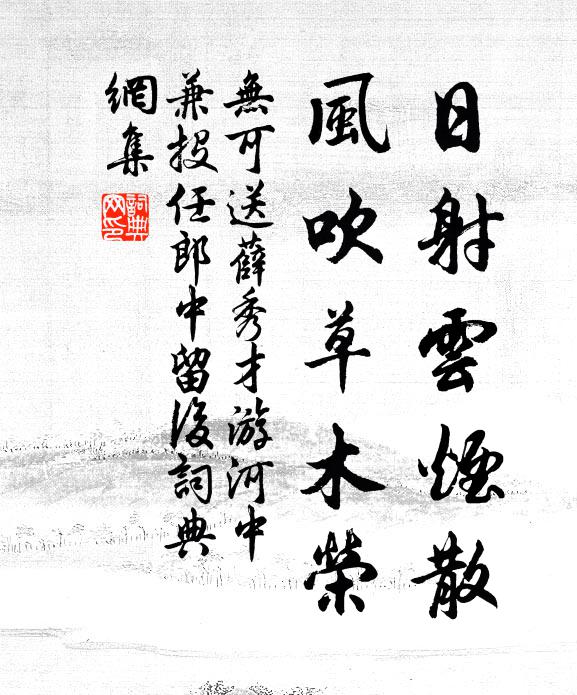 日射雲煙散
風吹草木榮
無可送薛秀才游河中
兼投任郎中留後詞典
網集
詞典
网印